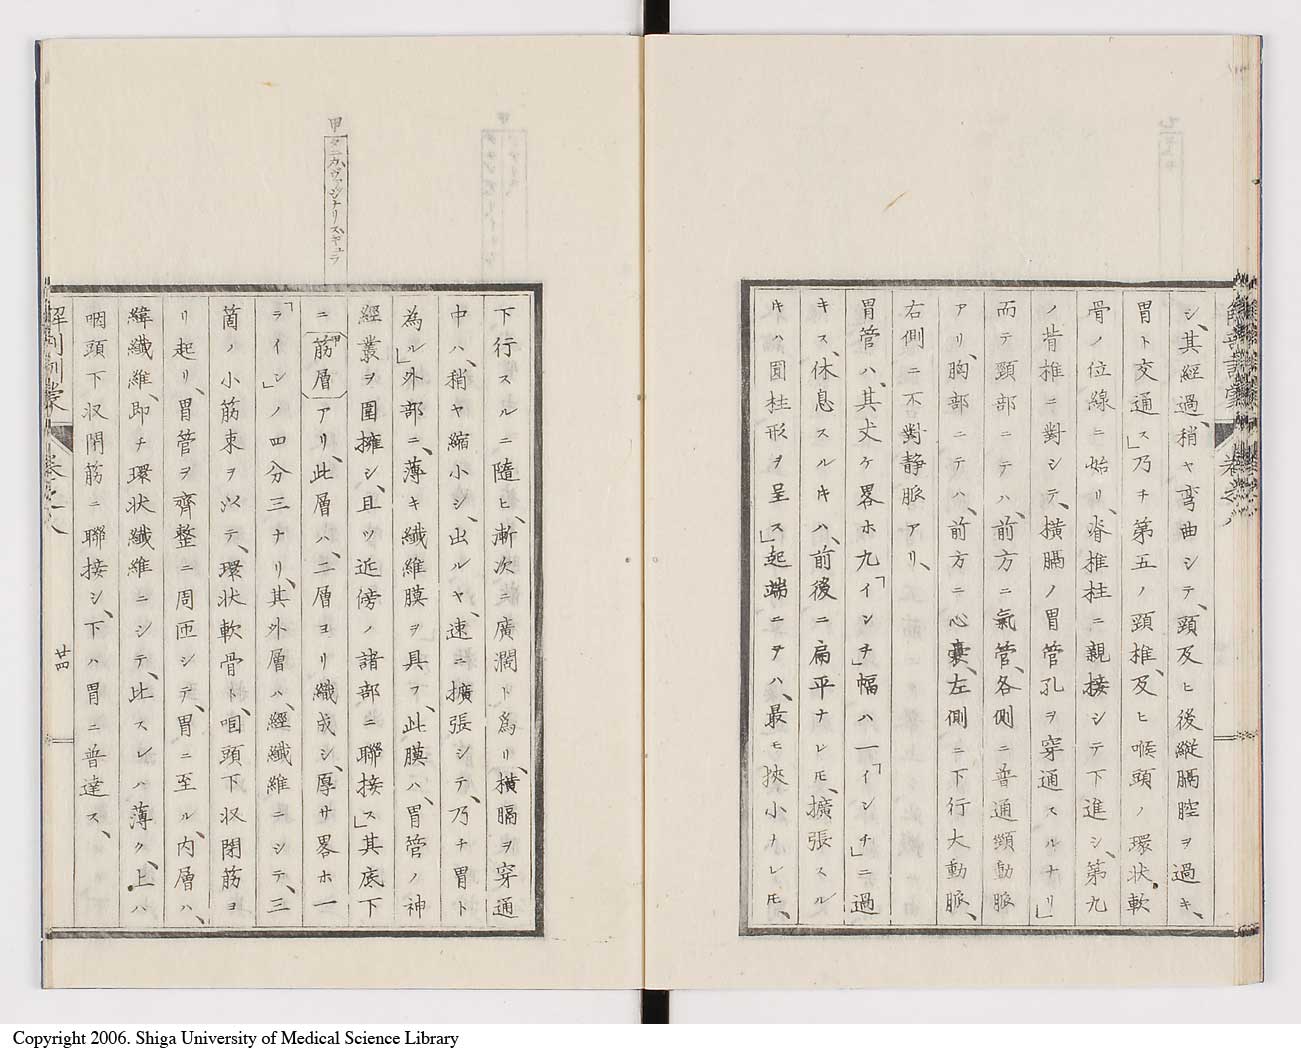 シ、其經過、稍ヤ弯曲シテ、頸及ヒ後縦膈腔ヲ過キ、
胃ト交通ス」乃チ第五ノ頸椎、及ヒ喉頭ノ環状軟
骨ノ位線ニ始リ、脊推柱ニ親接シテ下進シ、第九
ノ背椎ニ對シテ、横膈ノ胃管孔ヲ穿通スルナリ」
而テ頸部ニテハ、前方ニ氣管、各側ニ普通頸動脈
アリ、胸部ニテハ、前方ニ心嚢、左側ニ下行大動脈、
右側ニ不對静脈アリ、
胃管ハ、其丈ケ畧ホ九「インチ」幅ハ一「インチ」ニ過
キス、休息スルキハ、前後ニ扁平ナレモ、擴張スル
キハ圓柱形ヲ呈ス」起端ニヲハ、最モ挾小ナレモ、
下行スルニ隨ヒ、漸次ニ廣濶ト爲リ、横膈ヲ穿通
中ハ、稍ヤ縮小シ、出ルヤ、速ニ擴張シテ、乃チ胃ト
為ル」外部ニ、薄キ纎維膜ヲ具フ、此膜ハ、胃管ノ神
經叢ヲ圍擁シ、且ツ近傍ノ諸部ニ聯接ス」其底下
甲 タニカ、ヴァジナリス、ギュラ
ニ〔甲筋層〕アリ、此層ハ、二層ヨリ織成シ、厚サ畧ホ一
「ライン」ノ四分三ナリ、其外層ハ、經纎維ニシテ、三
箇ノ小筋束ヲ以テ、環状軟骨ト、咽頭下収閉筋ヨ
リ起リ、胃管ヲ齊整ニ周匝シテ、胃ニ至ル、内層ハ、
緯纎維、即チ環状纎維ニシテ、此スレハ薄ク、上ハ
咽頭下収閉筋ニ聯接シ、下ハ胃ニ普達ス、
廿四
Copyright 2006. Shiga University of Medical Science Library